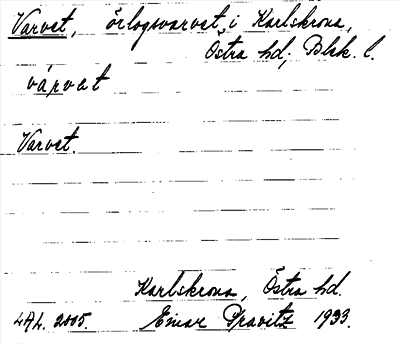 Varvet, örlogsvarvet, i Karlskrona,
Östra hd, Blek. l.
várvat
Varvet.
Karlskrona, Östra hd.
LAL. 2005. Einar Pravitz 1933.